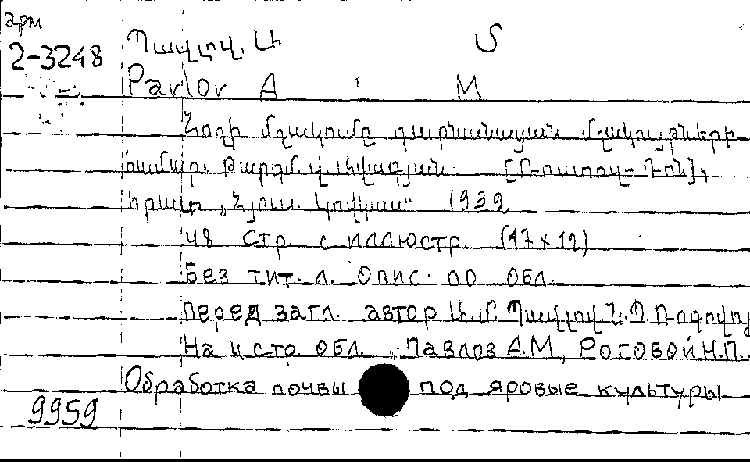 арм
2-3248 Պավլով. Ա Մ
Pavlov A M
Հողի մշակումը գարնանացան մշակույթների
համար. Թարգմ. [Ռոստով-Դոն],
Հրատ „Հյուս. Կովկաս“ 1932
48 стр с иллюстр. (17 x 12)
Без тит. л. Опис. по обл.
Перед загл. автор Ա. Մ. Պավլով Ն. Պ. Ռոգովոյ
На и стр обл. „Павлов А.М, Роговой Н.П.
Обработка почвы под яровые культуры
9959